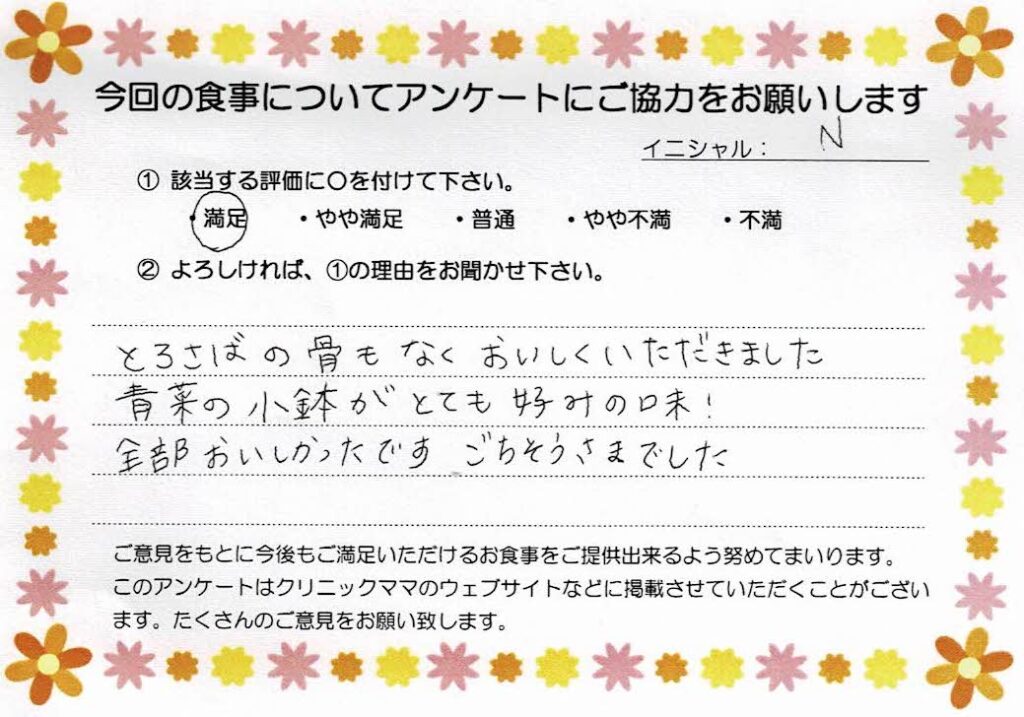 今回の食事についてアンケートにご協力をお願いします
イニシャル： N
① 該当する評価に〇を付けて下さい。
・満足 ・やや満足 ・普通 ・やや不満 ・不満
② よろしければ、①の理由をお聞かせ下さい。
とろさばの骨もなくおいしくいただきました
青菜の小鉢がとても好みの味！
全部おいしかったです ごちそうさまでした
ご意見をもとに今後もご満足いただけるお食事をご提供出来るよう努めてまいります。
このアンケートはクリニックママのウェブサイトなどに掲載させていただくことがござい
ます。たくさんのご意見をお願い致します。